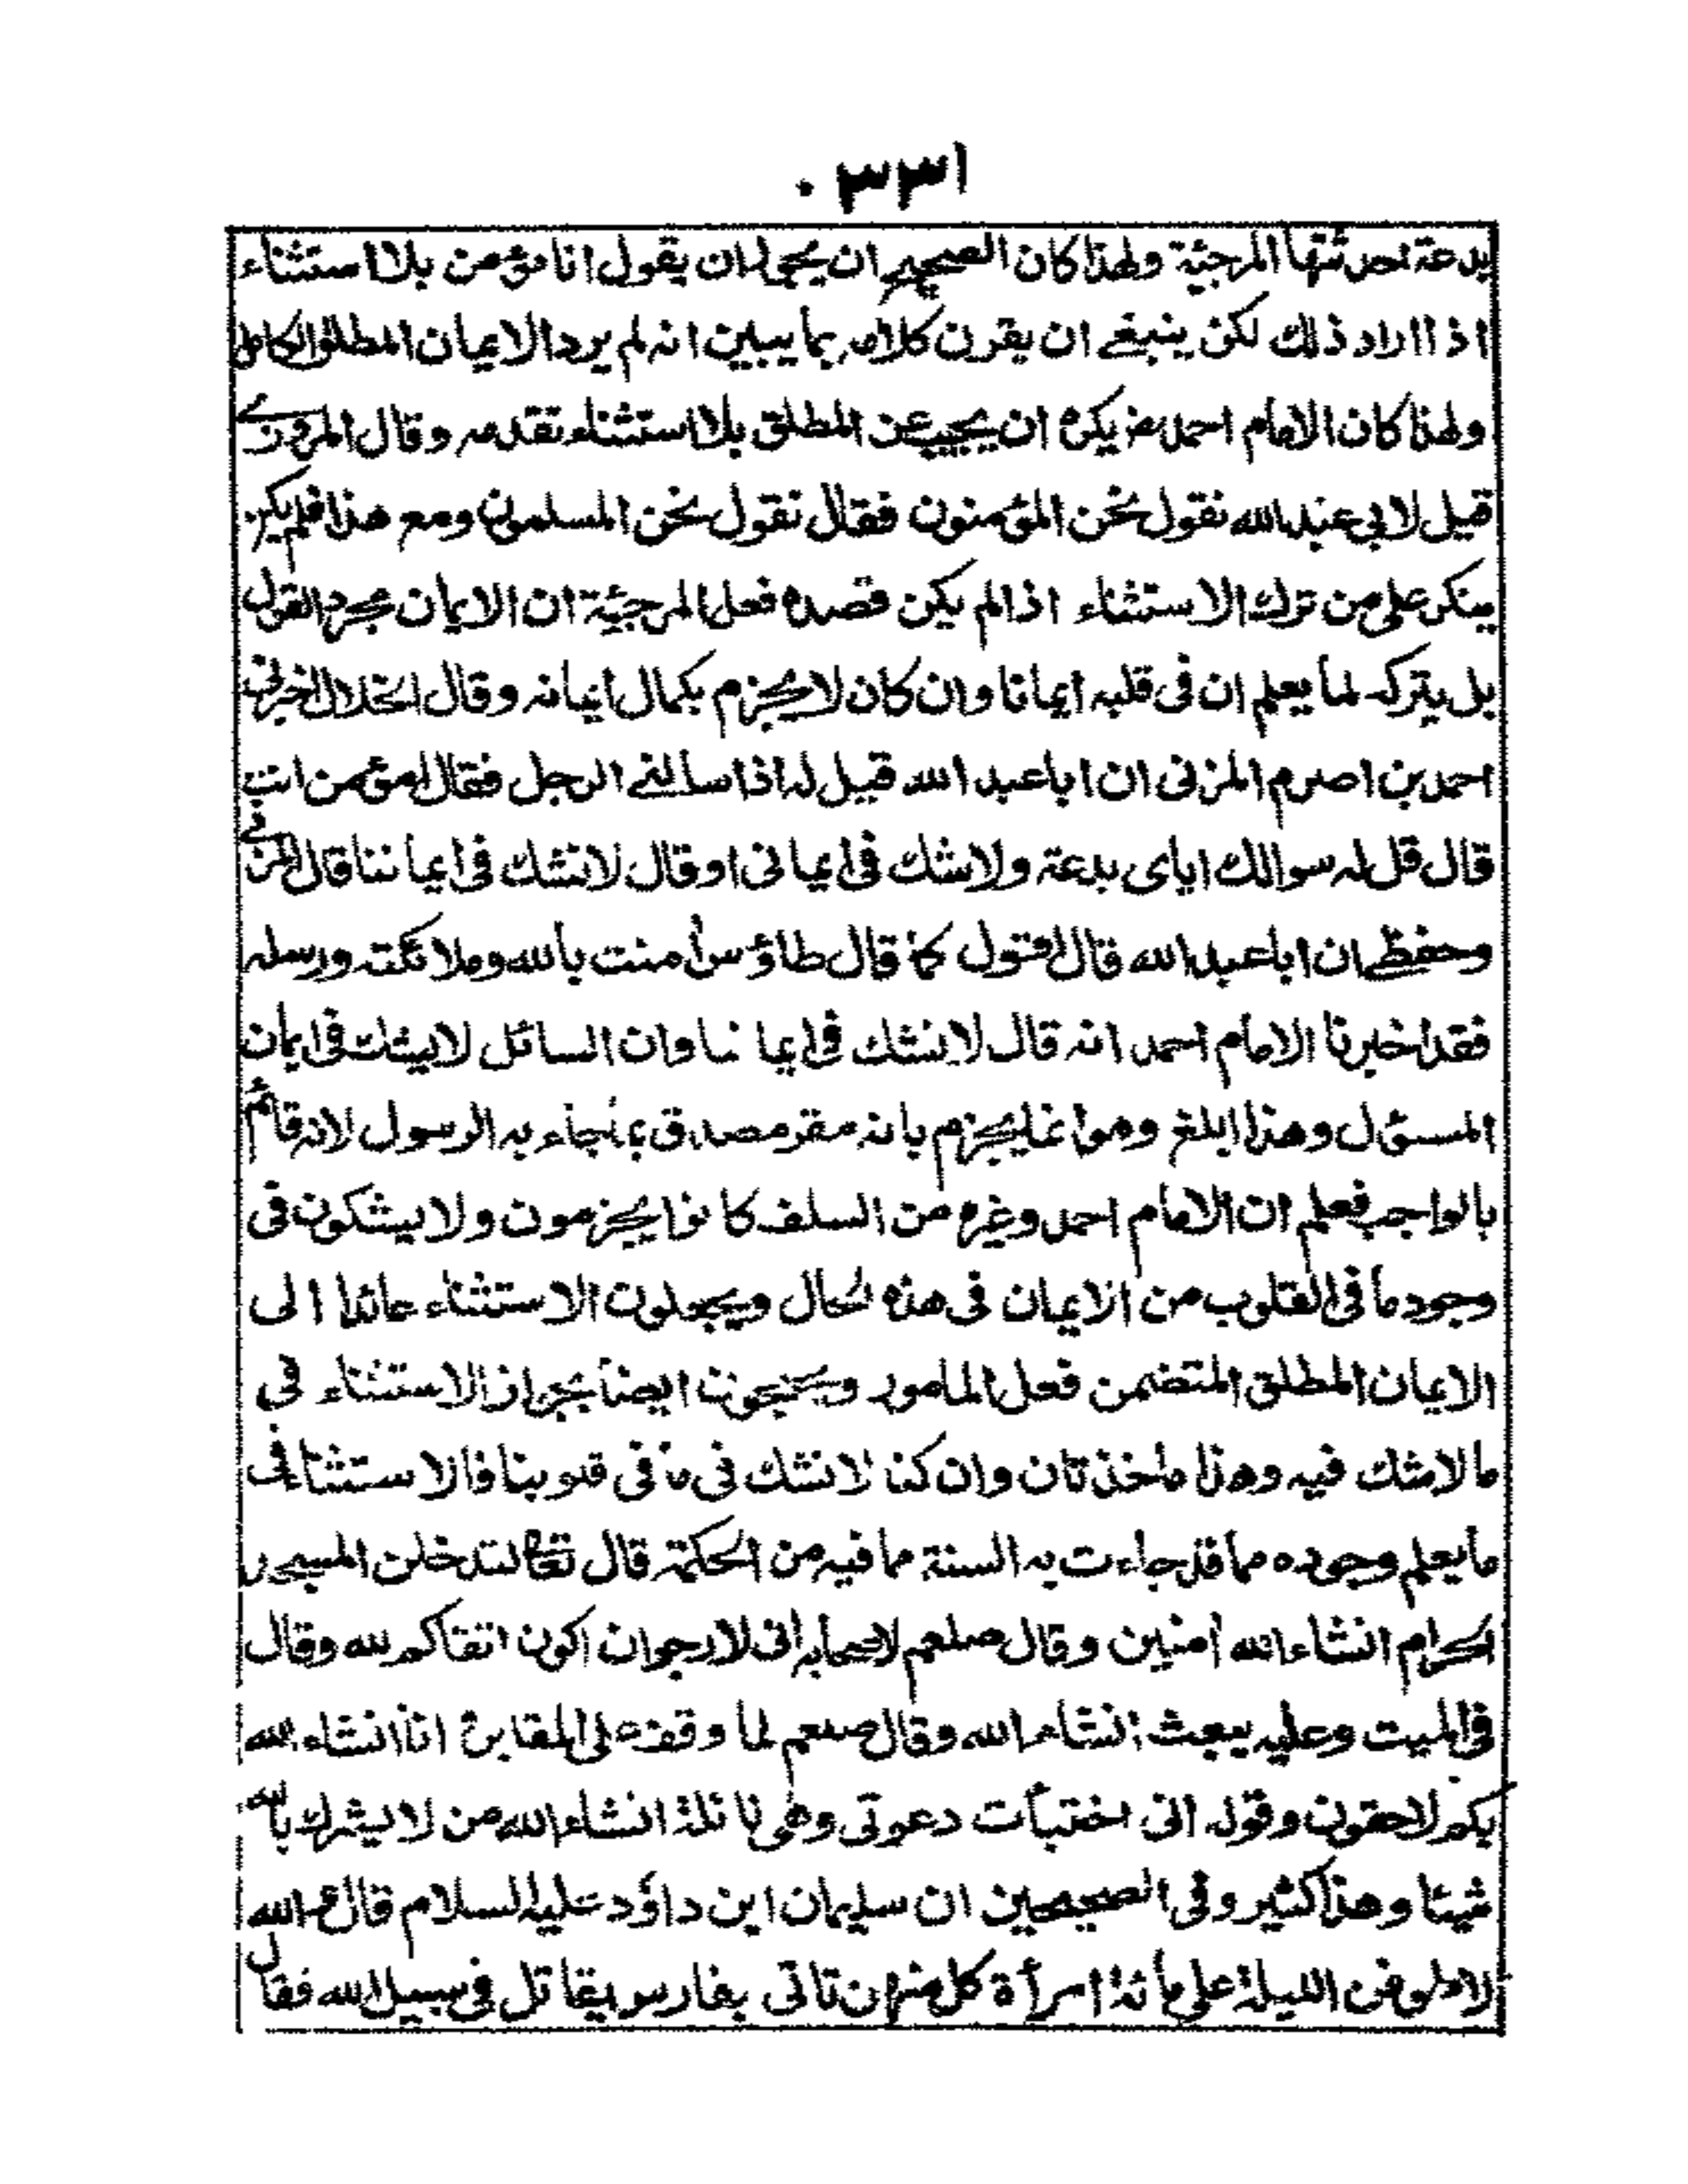 ٣٣١
بدعة احدثتها المرجئة ولهذا كان الصحيح ان يجوز ان يقول انا مؤمن بلا استثناء
اذا اراد ذلك لكن ينبغي ان يقرن كلامه بما يبين انه لم يرد الايمان المطلق الكامل
ولهذا كان الامام احمد رض يكره ان يجيب عن المطلق بلا استثناء تقدمه وقال المروزي
قيل لابي عبد الله نقول نحن المؤمنون فقال نقول نحن المسلمون ومع هذا فلم يكن
ينكر على من ترك الاستثناء اذا لم يكن قصده فعل المرجئة ان الايمان مجرد القول
بل يتركه لما يعلم ان في قلبه ايمانا وان كان لا يجزم بكمال ايمانه وقال الخلال اخبرني
احمد بن اصرم المزني ان ابا عبد الله قيل له اذا سألني الرجل فقال امؤمن انت
قال قل له سوالك اياى بدعة ولا شك في ايماني او قال لا نشك في ايماننا قال المزني
وحفظي ان ابا عبد الله قال اقول كما قال طاؤس أمنت بالله وملائكته ورسله
فقد اخبرنا الامام احمد انه قال لا نشك في ايماننا وان السائل لا يشك في ايمان
المسئول وهذا ابلغ وهو انما يجزم بانه مقر مصدق بما جاء به الرسول لانه قائم
بالواجب فعلم ان الامام احمد وغيره من السلف كانوا يجزمون ولا يشكون في
وجود ما في القلوب من الايمان في هذه الحال ويجعلون الاستثناء عائدا الى
الايمان المطلق المتضمن فعل المامور ويحتجون ايضا بجواز الاستثناء في
ما لا شك فيه وهذا ماخذ ثان وان كنا لا نشك في ما في قلوبنا فالاستثنا في
ما يعلم وجوده مما قد جاءت به السنة مما فيه من الحكمة قال تعالى لتدخلن المسجد
الحرام انشاء الله أمنين وقال صلعم لاصحابه انى لارجو ان اكون اتقاكم لله وقال
في الميت وعليه يبعث انشاء الله وقال صلعم لما وقف على المقابر انا انشاء الله
بكم لاحقون وقوله انى اختبأت دعوتى وهي نائلة انشاء الله من لا يشرك بالله
شيئا وهذا كثير وفي الصحيحين ان سليمان ابن داؤد عليه السلام قال والله
لاطوفن الليلة على مأئة امرأة كل منهن تاتى بفارس يقاتل في سبيل الله فقال